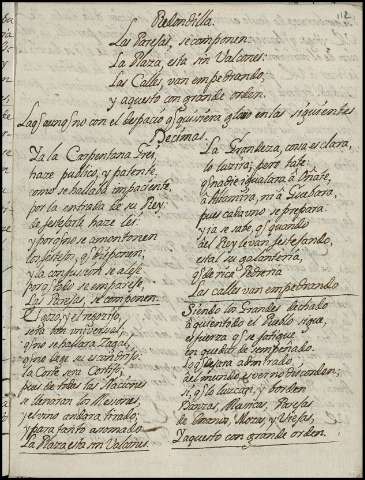 112
Redondilla.
Las Parejas, se componen:
La Plaza, esta sin Valcones:
Las Calles, van empedrando,
y aquesto con grande orden.
con el despacio q quisiera en las siguientes
Dezimas.
Ya la Carpentana Grei,
haze publico, y patente,
como se hallaba impaciente
por la entrada de su Rey:
de festejarla haze lei
y porq no se amontonen
los festejos, q disponen,
y la confusion se aleje
porq todo se empareje,
Las Parejas, se componen.
Gozo, y el regozijo,
sera tan universal,
q no se hallara Zagal,
q no dege su escondrijo.
la Corte sera
pues de todas las Naciones
se llenaran los Mesones
el uno andara tirado;
y para tanto asomado
La Plaza esta sin Valcones.
La Grandeza, cosa es clara,
lo luzira; pero tate
q nadie igualara à Oñate,
à Altamira, ni à Guebara,
pues cada uno se prepara
y ia se sabe, q quando
al Rey le van festejando,
esta su galanteria,
q de rica Pedreria
las calles van empedrando
Siendo los Grandes dechado
à quien todo el Pueblo sigue,
es fuerza q se fatigue
en quedar desempeñado.
lo q sera admirado,
del mundo es ver no discorden;
si, q lo luzcan, y borden
Danzas, Mascaras, Parejas
de Moros, y Viejas,
Y aquesto con grande orden.